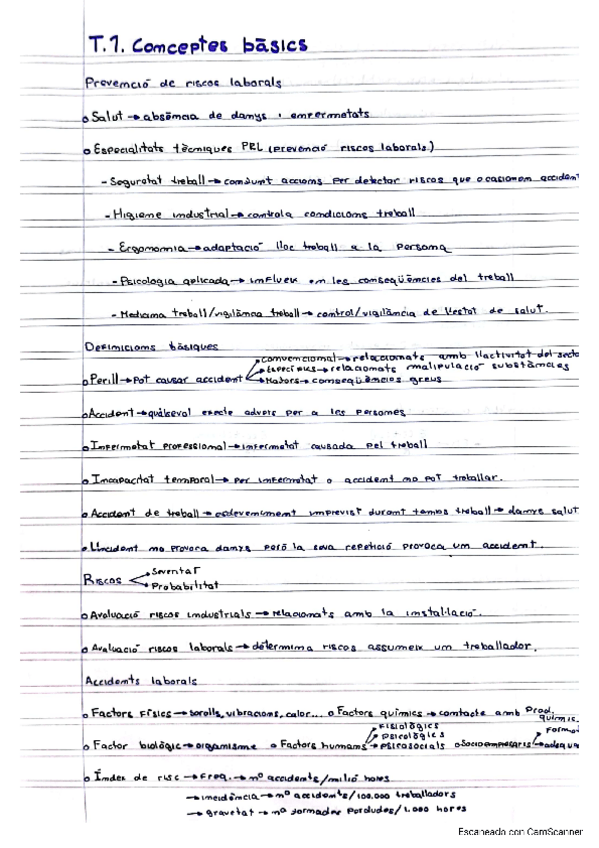 T.1. Conceptes bàsics
Prevenció de riscos laborals
o Salut → absència de danys i enfermetats
o Especialitats tècniques PRL (prevenció riscos laborals)
- Seguretat treball → conjunt accions per detectar riscos que ocasionem accident
- Higiene industrial → controla condicions treball
- Ergonomia → adaptació lloc treball a la persona
- Psicologia aplicada → influeix en les conseqüències del treball
- Medicina treball/vigilància treball → control/vigilància de l'estat de salut.
Definicions bàsiques
→ Convencional → relacionats amb l'activitat del secto
→ Específics → relacionats malipulació substàncies
o Perill → Pot causar accident → Majors → conseqüències greus
o Accident → qualseval efecte advers per a les persones
o Infermetat professional → infermetat causada pel treball
o Incapacitat temporal → per infermetat o accident no pot treballar.
o Accident de treball → esdeveniment imprevist durant temps treball → damys salut
o L'incident no provoca danys però la seva repetició provoca un accident.
Riscos → Severitat
→ Probabilitat
o Avaluació riscos industrials → relacionats amb la instal·lació.
o Avaluació riscos laborals → determina riscos assumeix un treballador.
Accidents laborals
o Factors físics → sorolls, vibracions, calor... o Factors químics → contacte amb Prod. químic.
o Factor biològic → organisme o Factors humans → Fisiològics → Psicològics → psicosocials o Socioempresaris → Formac → adequa
o Índex de risc → Freq. → nº accidents/milió hores
→ incidència → nº accidents/100.000 treballadors
→ gravetat → nº jornades perdudes/1.000 hores
Escaneado con CamScanner